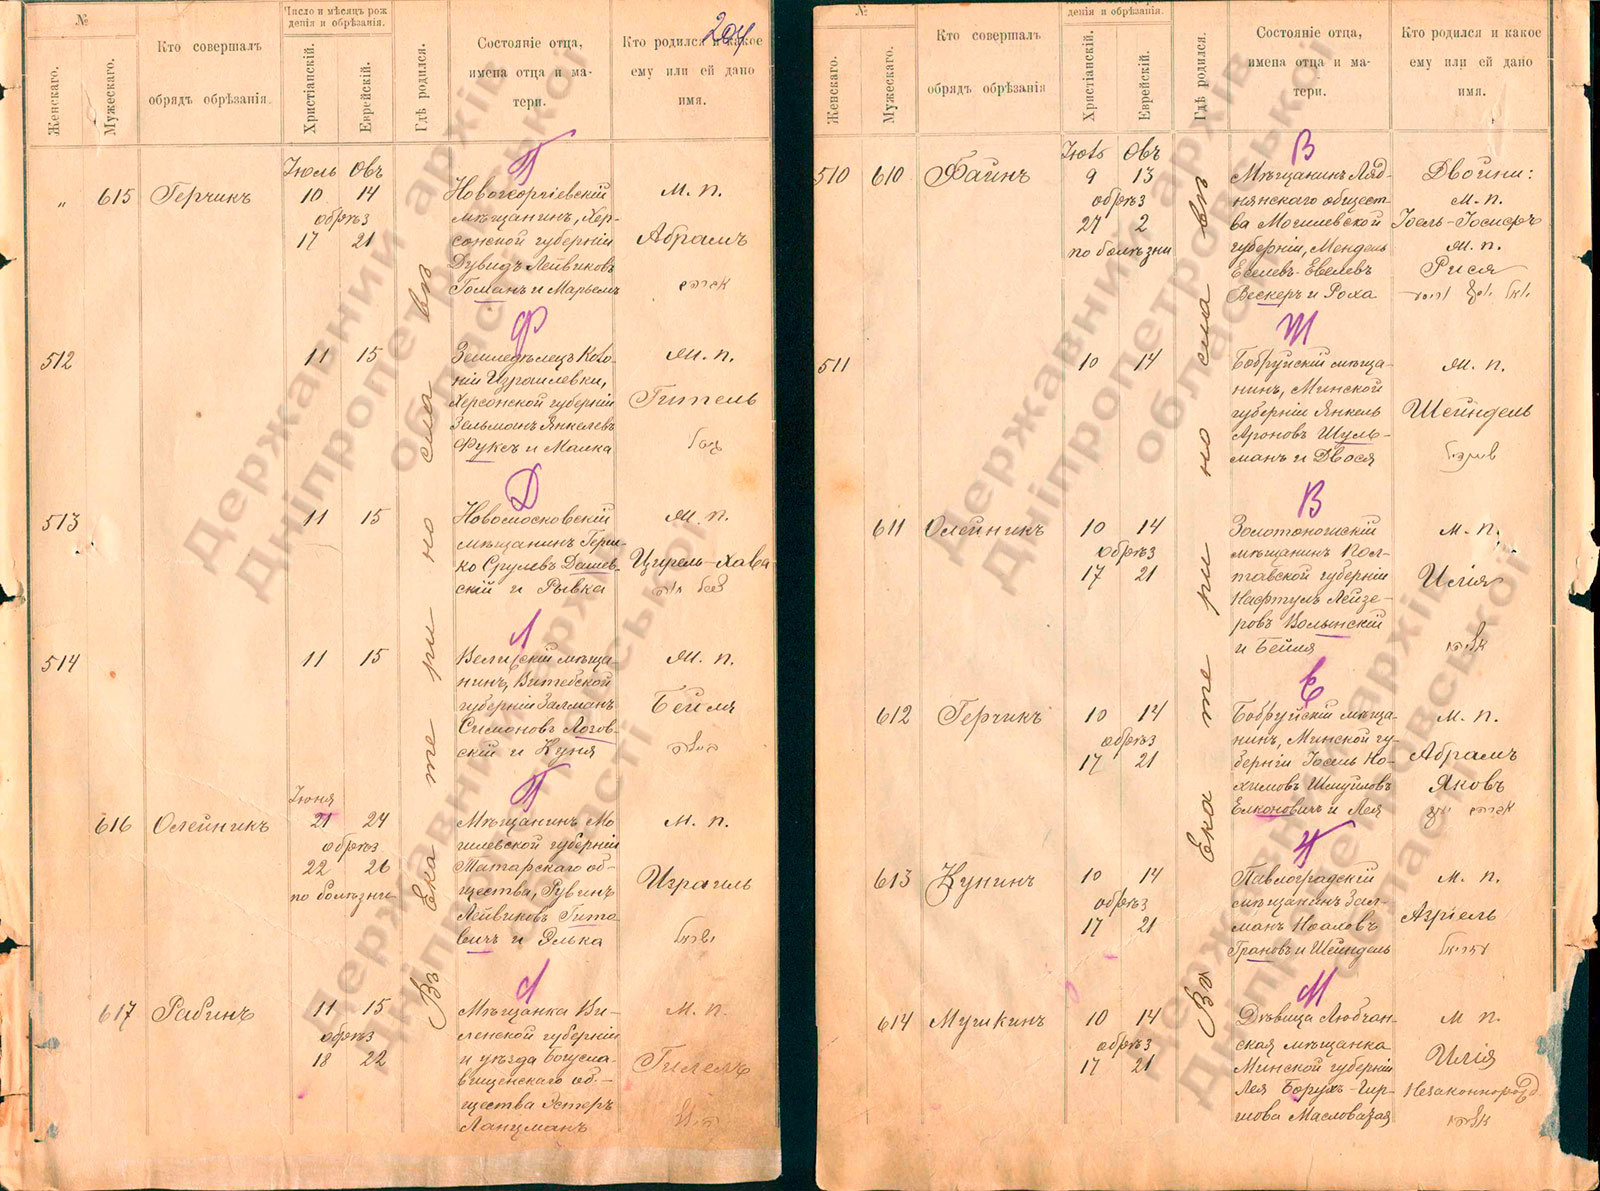 204
№
Женскаго.
Мужескаго.
Кто совершалъ
обрядъ обрѣзанія.
Число и мѣсяцъ рож
денія и обрѣзанія.
Христіанскій.
Еврейскій.
Гдѣ родился.
Состояніе отца,
имена отца и ма-
тери.
Кто родился и какое
ему или ей дано
имя.
Въ Екатеринославѣ
„ 615 Герчикъ
Іюль Овъ
10 14
обрѣз
17 21
П
Новогеоргіевскій
мѣщанинъ, Хер-
сонской губерніи
Дувидъ Лейвиковъ
Гоманъ и Марьемъ
м. п.
Абрамъ
512
11 15
Ф
Земледѣлецъ Коло-
ніи Израилевки,
Херсонской губерніи
Зельманъ Янкелевъ
Фуксъ и Малка
м. п.
Гитель
513
11 15
Д
Новомосковскій
мѣщанинъ Герш-
ко Срулевъ Дашев-
скій и Рывка
м. п.
Цирель-Хава
514
11 15
Л
мѣща-
нинъ, Витебской
губерніи Залманъ
Симоновъ Лозов-
скій и Куня
м. п.
Бейля
616 Олейникъ
Іюня
21 24
обрѣз
22 26
по болѣзни
Мѣщанинъ Мо-
гилевской губерніи
Татарскаго об-
щества, Рувинъ
Лейвиковъ
и Элька
м. п.
Израиль
617 Рабинъ
11 15
обрѣз
18 22
Л
Мѣщанка Ви-
ленской губерніи
и уѣзда
об-
щества Эстеръ
Ланцманъ
м. п.
Гилелъ
№
Женскаго.
Мужескаго.
Кто совершалъ
обрядъ обрѣзанія
денія и обрѣзанія.
Христіанскій.
Еврейскій.
Гдѣ родился.
Состояніе отца,
имена отца и ма-
тери.
Кто родился и какое
ему или ей дано
имя.
Въ Екатеринославѣ
510 610 Файнъ
Іюль Овъ
9 13
обрѣз
27 2
по болѣзни
В
Мѣщанинъ Ляд-
нянскаго общест-
ва Могилевской
губерніи, Мендель
Евелевъ-Евелевъ
Вескеръ и Роха
Двойни:
м. п.
Іоель-Іосифъ
м. п.
Рися
511
10 14
Ш
Бобруйскій мѣща-
нинъ, Минской
губерніи Янкель
Ароновъ Шуль-
манъ и Двося
м. п.
Шейндель
611 Олейникъ
10 14
обрѣз
17 21
В
Золотоношскій
мѣщанинъ Пол-
тавской губерніи
Нафтулъ Лейзе-
ровъ Волынскій
и Бейля
м. п.
Илія
612 Герчикъ
10 14
обрѣз
17 21
Е
Бобруйскій мѣща-
нинъ, Минской гу-
берніи Іосель Но-
химовъ Шмуйловъ
Елконовичъ и Лея
м. п.
Абрамъ
Яковъ
613 Кунинъ
10 14
обрѣз
17 21
Павлоградскій
мѣщанинъ Зал-
манъ Ноаловъ
Грановъ и Шейндель
м. п.
Азріель
614 Мушкинъ
10 14
обрѣз
17 21
М
Дѣвица Любчан-
ская мѣщанка
Минской губерніи
Лея Борухъ-Гир-
шова Масловатая
м п.
Илія
Незаконнорожд.
Державний архів
Дніпропетровської
області